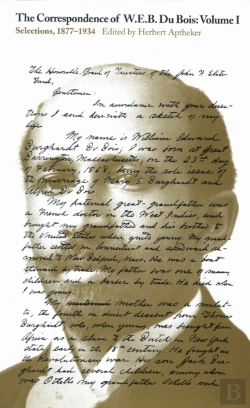 The Correspondence of W.E.B. Du Bois: Volume I
Selections, 1877–1934 Edited by Herbert Aptheker
The Honorable Board of Trustees of the John F. Slater
Fund,
Gentlemen:
In accordance with your direc-
tions I send herewith a sketch of my
life.
My name is William Edward
Burghardt Du Bois, I was born at Great
Barrington, Massachusetts, on the 23rd day
of February, 1868, being the sole issue of
the marriage of Mary S. Burghardt and
Alfred Du Bois
My paternal great-grandfather was
a French doctor in the West Indies, and
brought my grandfather and his brother to
the United States when quite young. My grand
father settled in Connecticut and
to New Bedford, Mass. He was a boat
steward by trade. My father was one of many
children and a barber by trade. He died when
I was young.
My mother was a mulat-
to, the fourth in direct descent from Thomas
Burghardt who, when young, was brought from
Africa as a slave to the Dutch in New York
state early in the 18th century. He fought in
the Revolutionary War. His son Jack Bur-
ghardt had several children, among whom
was Othello my grandfather. Othello and
B